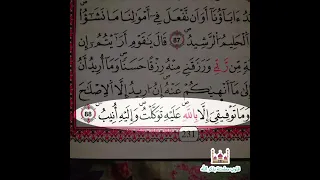 ءَابَآؤُنَآ أَوْ أَن نَّفْعَلَ فِىٓ أَمْوَٰلِنَا مَا نَشَٰٓؤُا۟
الْحَلِيمُ الرَّشِيدُ ٨٧ قَالَ يَٰقَوْمِ أَرَءَيْتُمْ إِن
مِّن رَّبِّى وَرَزَقَنِى مِنْهُ رِزْقًا حَسَنًا وَمَآ أُرِيدُ أَنْ
مَآ أَنْهَىٰكُمْ عَنْهُ إِنْ أُرِيدُ إِلَّا الْإِصْلَٰحَ
وَمَا تَوْفِيقِىٓ إِلَّا بِاللَّهِ عَلَيْهِ تَوَكَّلْتُ وَإِلَيْهِ أُنِيبُ ٨٨
231